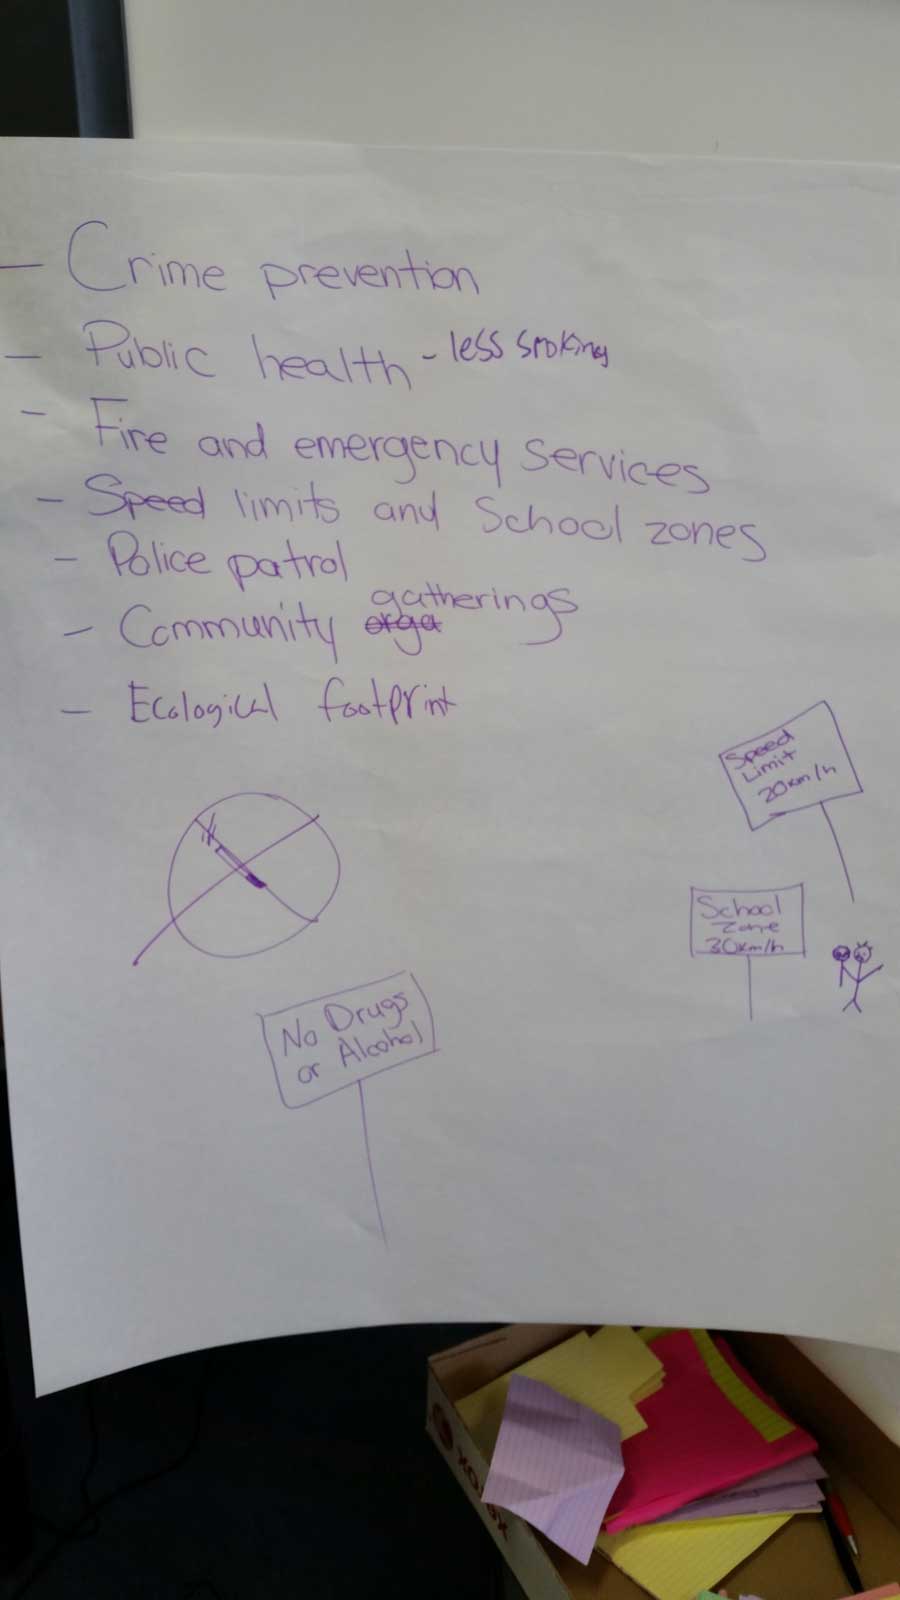 - Crime prevention
- Public health - less smoking
- Fire and emergency services
- Speed limits and School zones
- Police patrol
- Community orga gatherings
- Ecological footprint
Speed
Limit
20km/h
School
Zone
30km/h
No Drugs
or Alcohol